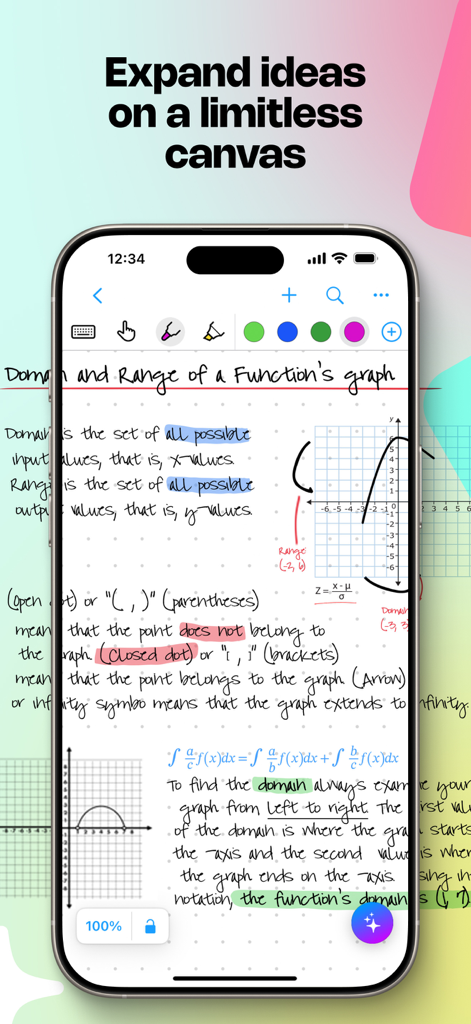 Expand ideas
on a limitless
canvas
12:34
Domain and Range of a Function's graph
Domain is the set of all possible
input values, that is, x-values.
Range is the set of all possible
output values, that is, y-values
y
5
3
2
1
-6 -5 -4 -3 -2 -1 0 2 3 4 5 6
-1
-2
-3
-4
-5
-6
Range
(-2, 6)
Z = x - μ / σ
Domain
(-3, 3)
(Open dot) or "( , )" (parentheses)
mean that the point does not belong to
the graph (Closed dot) or "[ , ]" (brackets)
mean that the point belongs to the graph (Arrow)
or infinity symbo means that the graph extends to infinity.
∫ a/c f(x)dx = ∫ a/b f(x)dx + ∫ b/c f(x)dx
To find the domain always examine your
graph from left to right. The first value
of the domain is where the graph starts
the axis and the second value is where
the graph ends on the axis.
notation, the function's domain is
100%